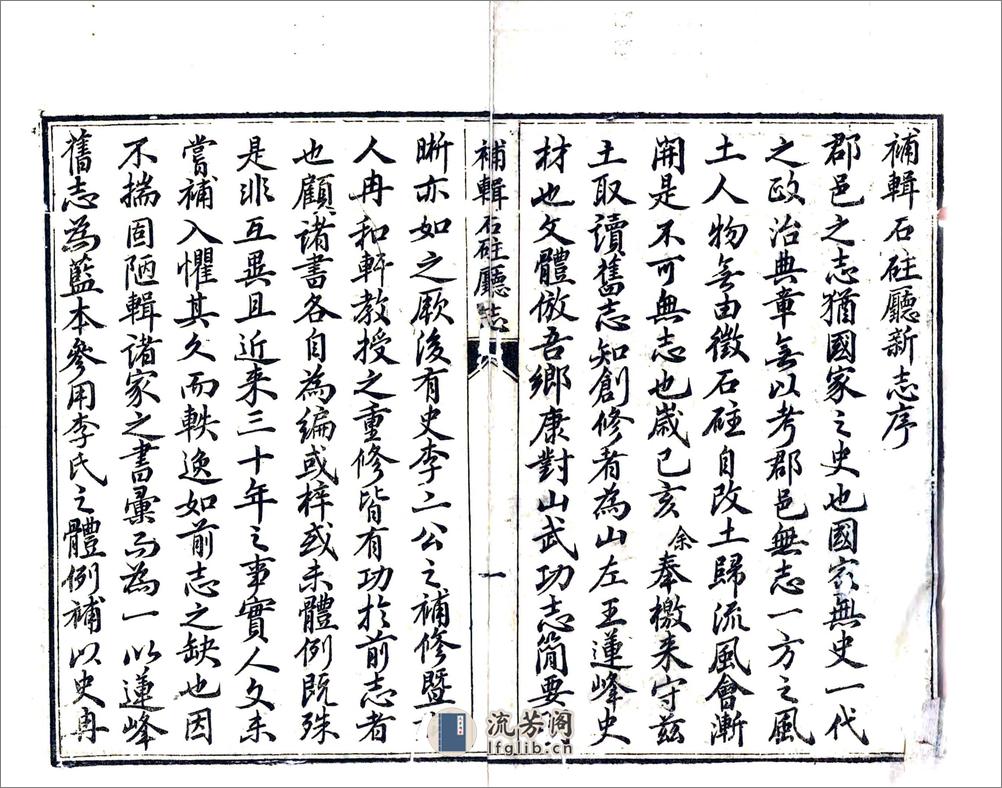 補輯石砫廳新志序
郡邑之志猶國家之史也國家無史一代
之政治典章無以考郡邑無志一方之風
土人物無由徵石砫自改土歸流風會漸
開是不可無志也歲己亥余奉檄来守茲
土取讀舊志知創修者為山左王蓮峰史
材也文體倣吾鄉康對山武功志簡要
補輯石砫廳志
序
一
晰亦如之厥後有史李二公之補修暨
人冉和軒教授之重修皆有功於前志者
也顧諸書各自為編或梓或未體例既殊
是非互異且近来三十年之事實人文未
嘗補入懼其久而軼逸如前志之缺也因
不揣固陋輯諸家之書彙而為一以蓮峰
舊志為藍本參用李氏之體例補以史冉
流芳阁
lfglib.cn